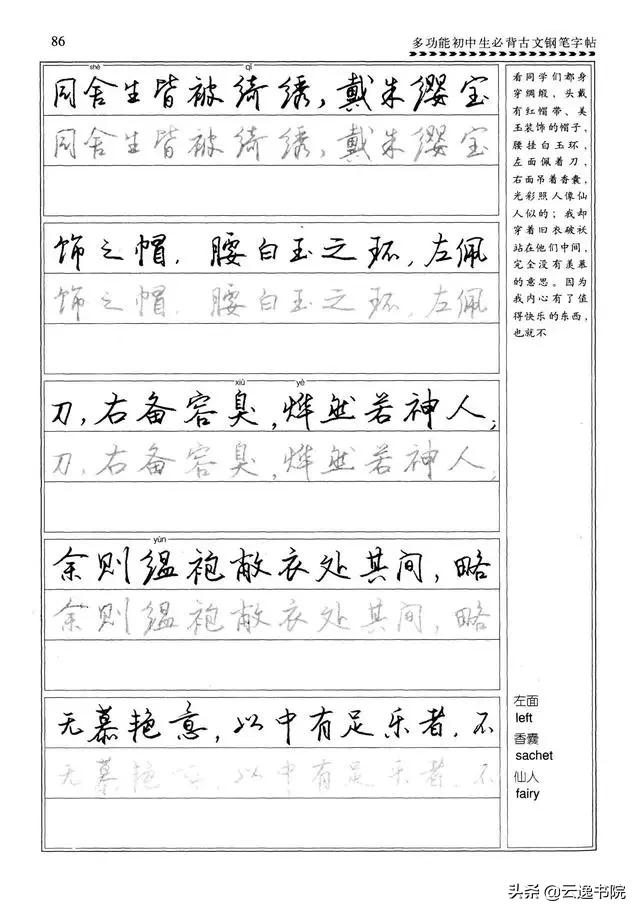 86
多功能初中生必背古文钢笔字帖
shè qǐ
同舍生皆被绮绣，戴朱缨宝
同舍生皆被绮绣，戴朱缨宝
饰之帽，腰白玉之环，左佩
饰之帽，腰白玉之环，左佩
xiù yè
刀，右备容臭，烨然若神人；
刀，右备容臭，烨然若神人；
yùn
余则缊袍敝衣处其间，略
余则缊袍敝衣处其间，略
无慕艳意，以中有足乐者，不
无慕艳意，以中有足乐者，不
看同学们都身
穿绸缎，头戴
有红帽带、美
玉装饰的帽子，
腰挂白玉环，
左面佩着刀，
右面吊着香囊，
光彩照人像仙
人似的；我却
穿着旧衣破袄
站在他们中间，
完全没有羡慕
的意思。因为
我内心有了值
得快乐的东西，
也就不
左面
left
香囊
sachet
仙人
fairy
头条@云逸书院